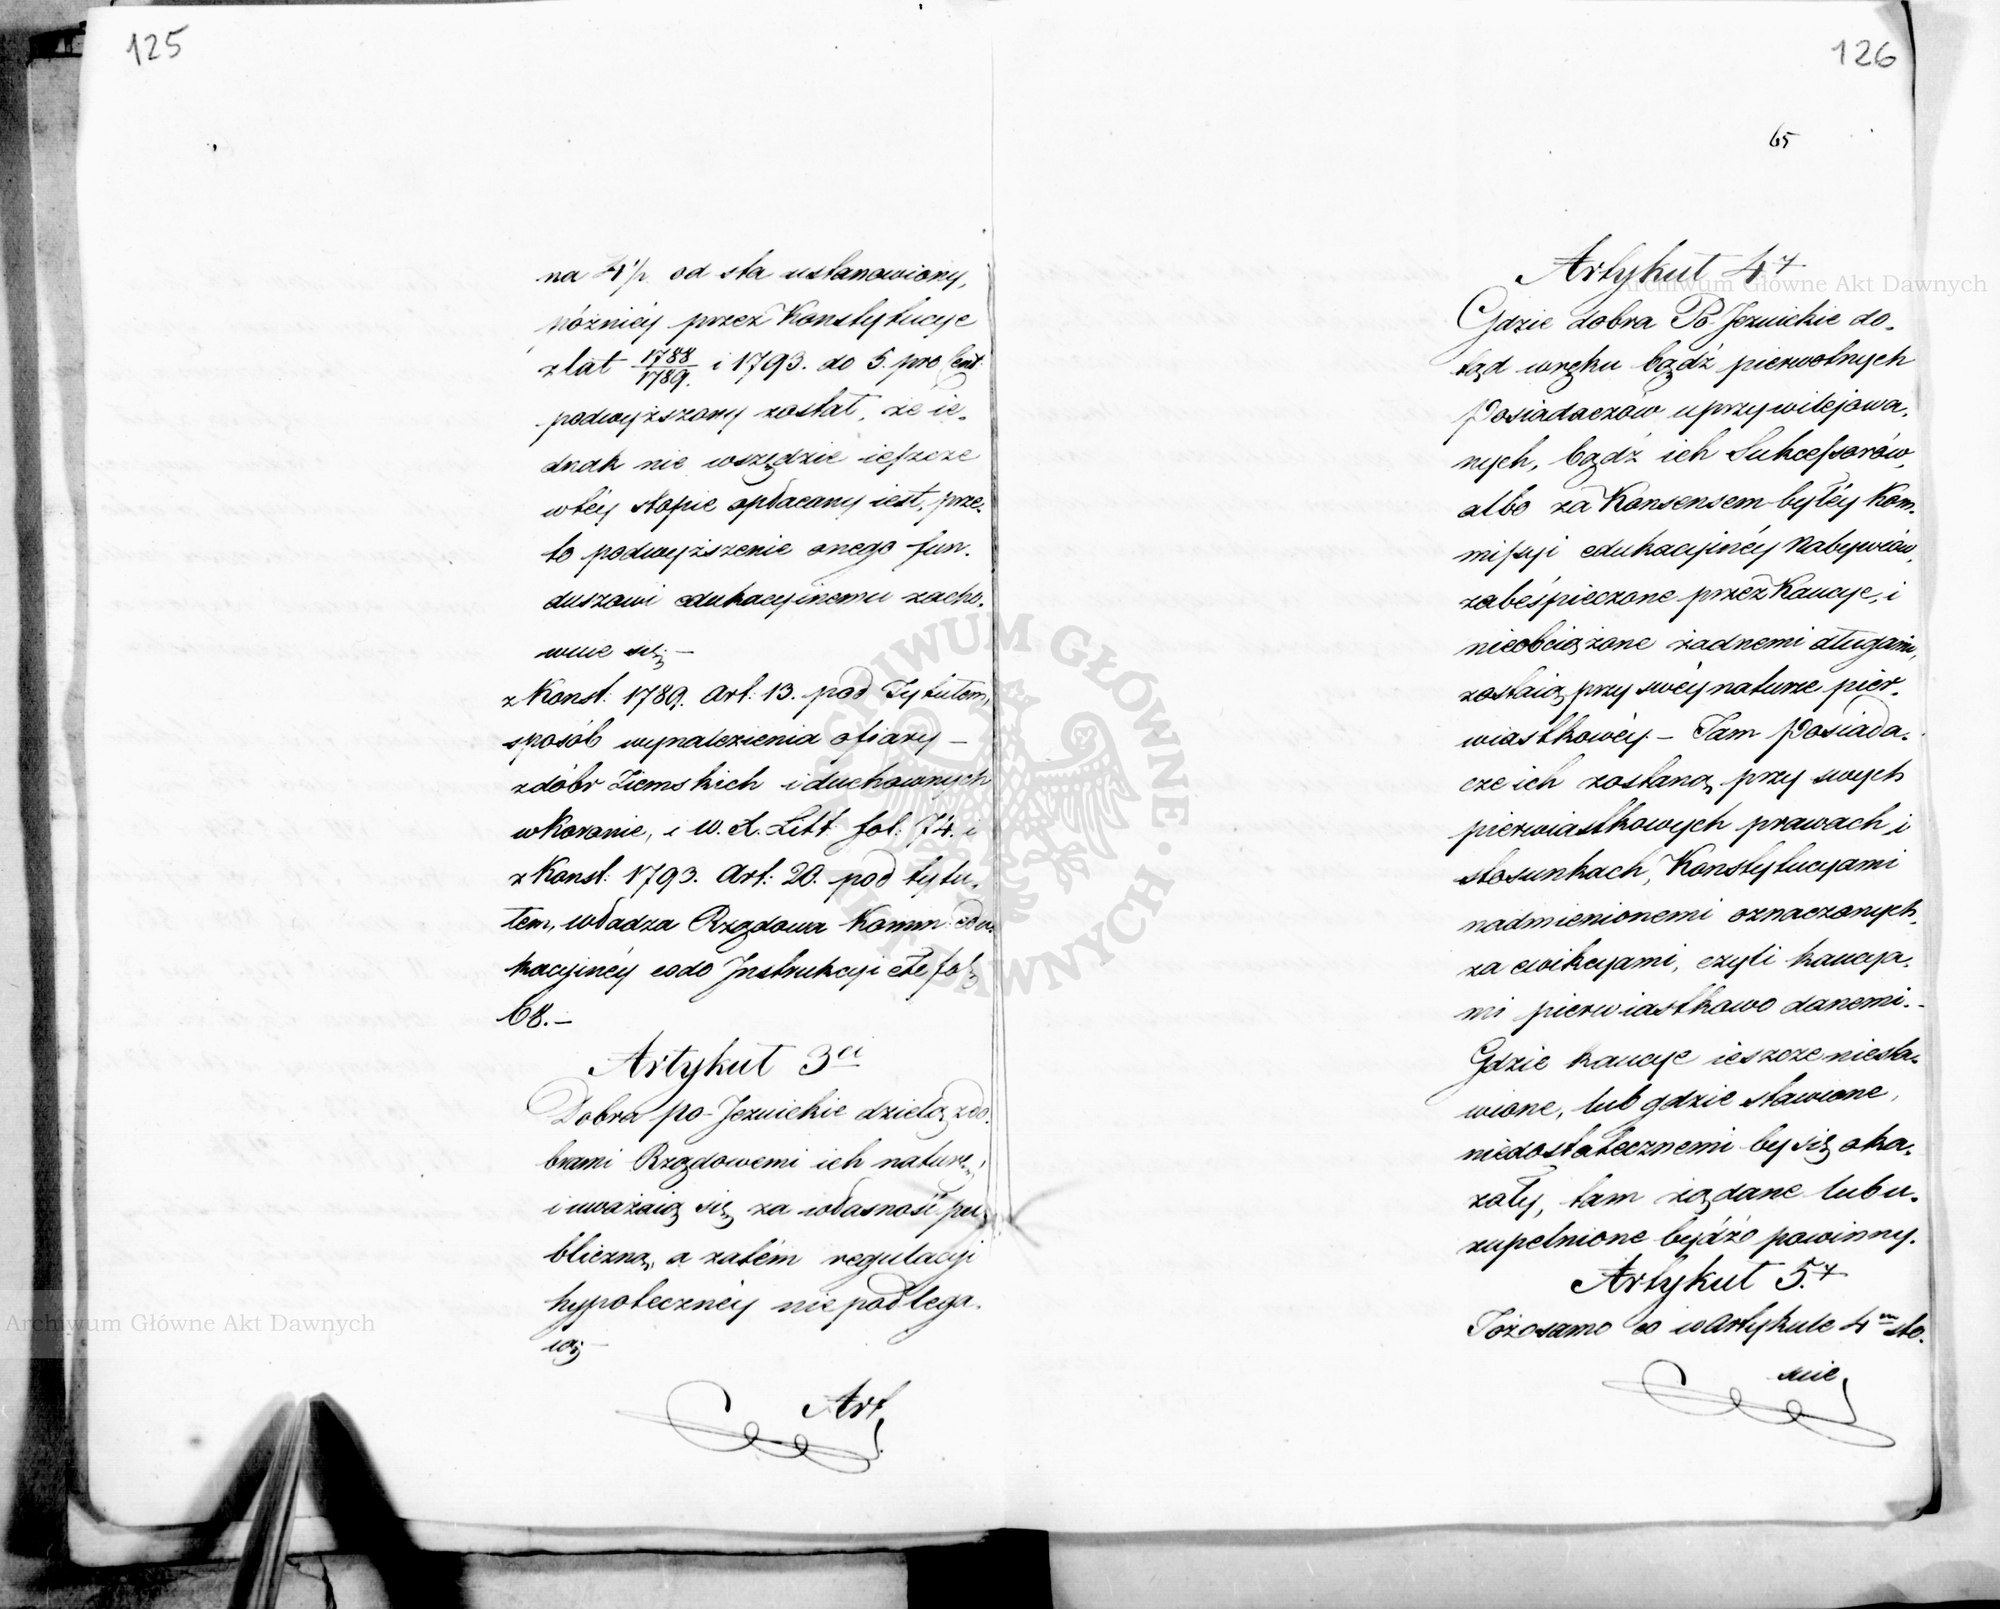 125
na 4 p. od sta ustanowiony,
późniéy przez Konstytucye
z lat 1788/1789. i 1793. do 5. pro Cent:
podwyższony został, że ie-
dnak nie wszędzie ieszcze
w téy stopie opłacany iest, prze-
to podwyższenie onego fun-
duszowi edukacyinemu zacho-
wuie się. —
z Konst: 1789. Art: 13. pod Tytułem,
sposób wynalezienia ofiary —
z dóbr Ziemskich i duchownych
w Koronie, i W. X. Litt: fol: 74. i
z Konst: 1793. Art: 20. pod tytu-
łem, władza Rządowa Komm: edu-
kacyinéy co do Instrukcyi etc fol:
68. —
Artykuł 3ci
Dobra po-Jezuickie dzielą z do-
brami Rządowemi ich naturę,
i uważaią się za własność pu-
bliczną, a zatém regulacyi
hypotecznéy nie podlega-
ią —
Art
126
65
Artykuł 4y
Gdzie dobra Po-Jezuickie do-
tąd w ręku bądź pierwotnych
Posiadaczów uprzywilejowa-
nych, bądź ich Sukcessorów,
albo za Konsensem byłéy Kom-
missyi edukacyinéy Nabywców,
zabéśpieczone przez Kaucye, i
nieobciążone żadnemi długami,
zostaią przy swéy naturze pier-
wiastkowéy — Tam Posiada-
cze ich zostaną przy swych
pierwiastkowych prawach i
stosunkach, Konstytucyami
nadmienionemi oznaczonych
za ewikcyami, czyli kaucya-
mi pierwiastkowo danemi. —
Gdzie kaucye ieszcze niesta-
wione, lub gdzie stawione,
niedostatecznemi by się oka-
zały, tam żądane lub u-
zupełnione bydźo powinny.
Artykuł 5.y
Tożsamo co w Artykule 4m sto-
suie
Archiwum Główne Akt Dawnych
Archiwum Główne Akt Dawnych
ARCHIWUM GŁÓWNE AKT DAWNYCH